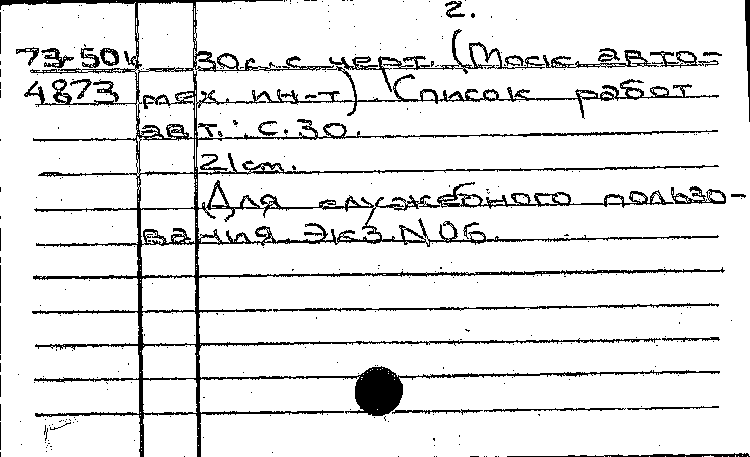 2.
73-50к 30с. с черт. (Моск. авто-
4873 мех. ин-т). Список работ
авт.: с. 30.
21см.
Для служебного пользо-
вания. Экз. N 06.